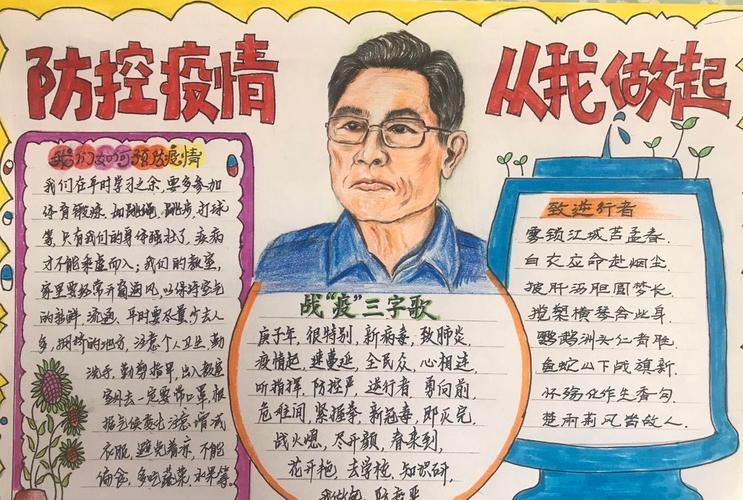 防控疫情
从我做起
我们如何预防疫情
我们在平时学习之余,要多参加
体育锻炼,如跳绳,跳步,打球
等,只有我们的身体强壮了,疾病
才不能乘虚而入;我们的教室,
家里要经常开窗通风,以保持空气
的新鲜,流通,平时要尽量少去人
多,拥挤的地方,注意个人卫生,勤
洗手,勤剪指甲,出入教室
室外去一定要带口罩,根
据气候变化注意增减
衣服,避免着凉,不能
偏食,多吃蔬菜,水果等.
战“疫”三字歌
庚子年,很特别,新病毒,致肺炎.
疫情起,速蔓延,全民众,心相连,
听指挥,防控严,逆行者,勇向前,
危难间,紧握拳,新冠毒,即灭完,
战火熄,尽开颜,春来到,
花开艳,去学校,知识研,
致逆行者
雾锁江城苦孟春.
白衣应命赴烟尘.
披肝沥胆圆梦长.
揽琴横琴舍此身.
鹦鹉洲头仁者胜.
龟蛇山下战旗新.
怀殇化作生香句.
楚雨荆风当故人.